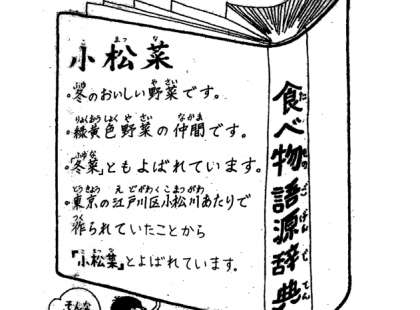 小松菜
・冬のおいしい野菜です。
・緑黄色野菜の仲間です。
・「冬菜」ともよばれています。
・東京の江戸川区小松川あたりで
作られていたことから
「小松菜」とよばれています。
食べ物語源辞典
そんな